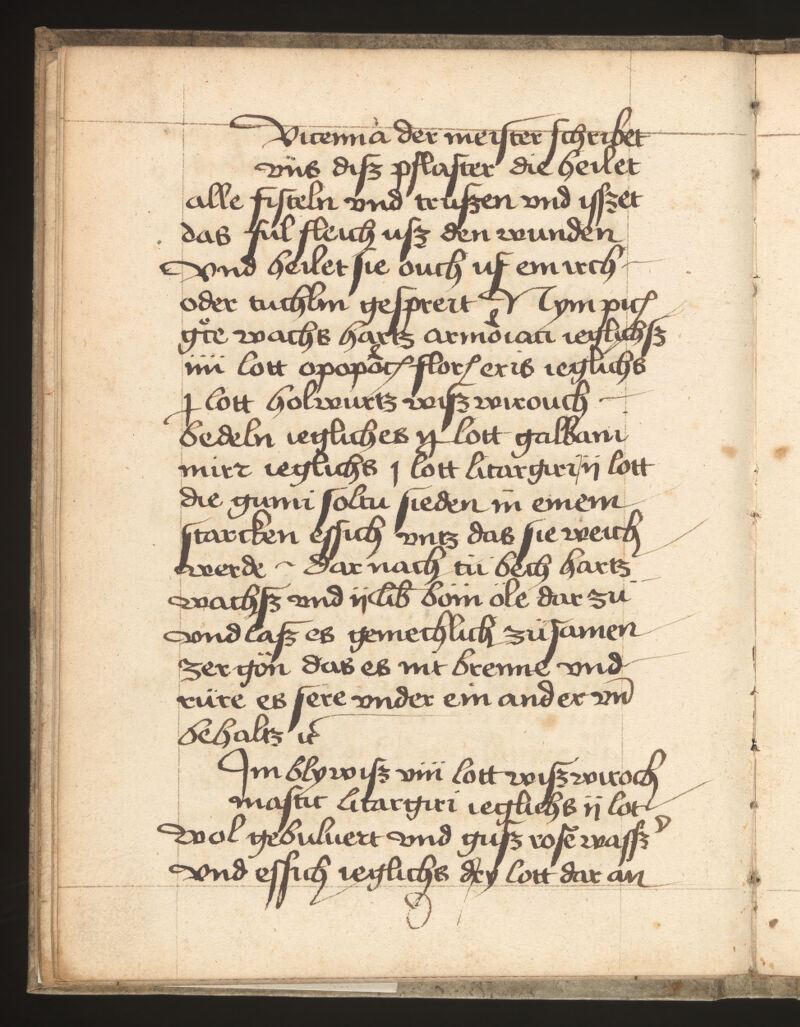 Auicenna der meister schribet
vns disz pflaster die heilet
alle fisteln vnd trusen vnd ysszet
das ful fleich usz den wunden
Vnd heilet sie ouch uf ein irch
oder tuchlin gespreit Nym pich
wachs hartz armoiaci ieglichsz
iiii lott opopoc flor eris ieglichs
j lott holwurtz wisz wirouch
bedeln iegliches ij lott galbani
mirr ieglichs j lott litargiri ij lott
die gumi soltu sieden in einem
starcken essich vntz das sie weich
werde dar nach tü bech hartz
wachsz vnd ij lib böm öle dar zü
vnd lasz es gemechlich züsamen
zer gön das es nit brenne vnd
rüre es sere vnder ein ander vn̄
behaltz
Jm blywisz viii lott wisz wiroch
mastic litargiri ieglichs ij lot
wol gebuluert vnd gusz rose wassz
vnd essich ieglichs dry lott dar an